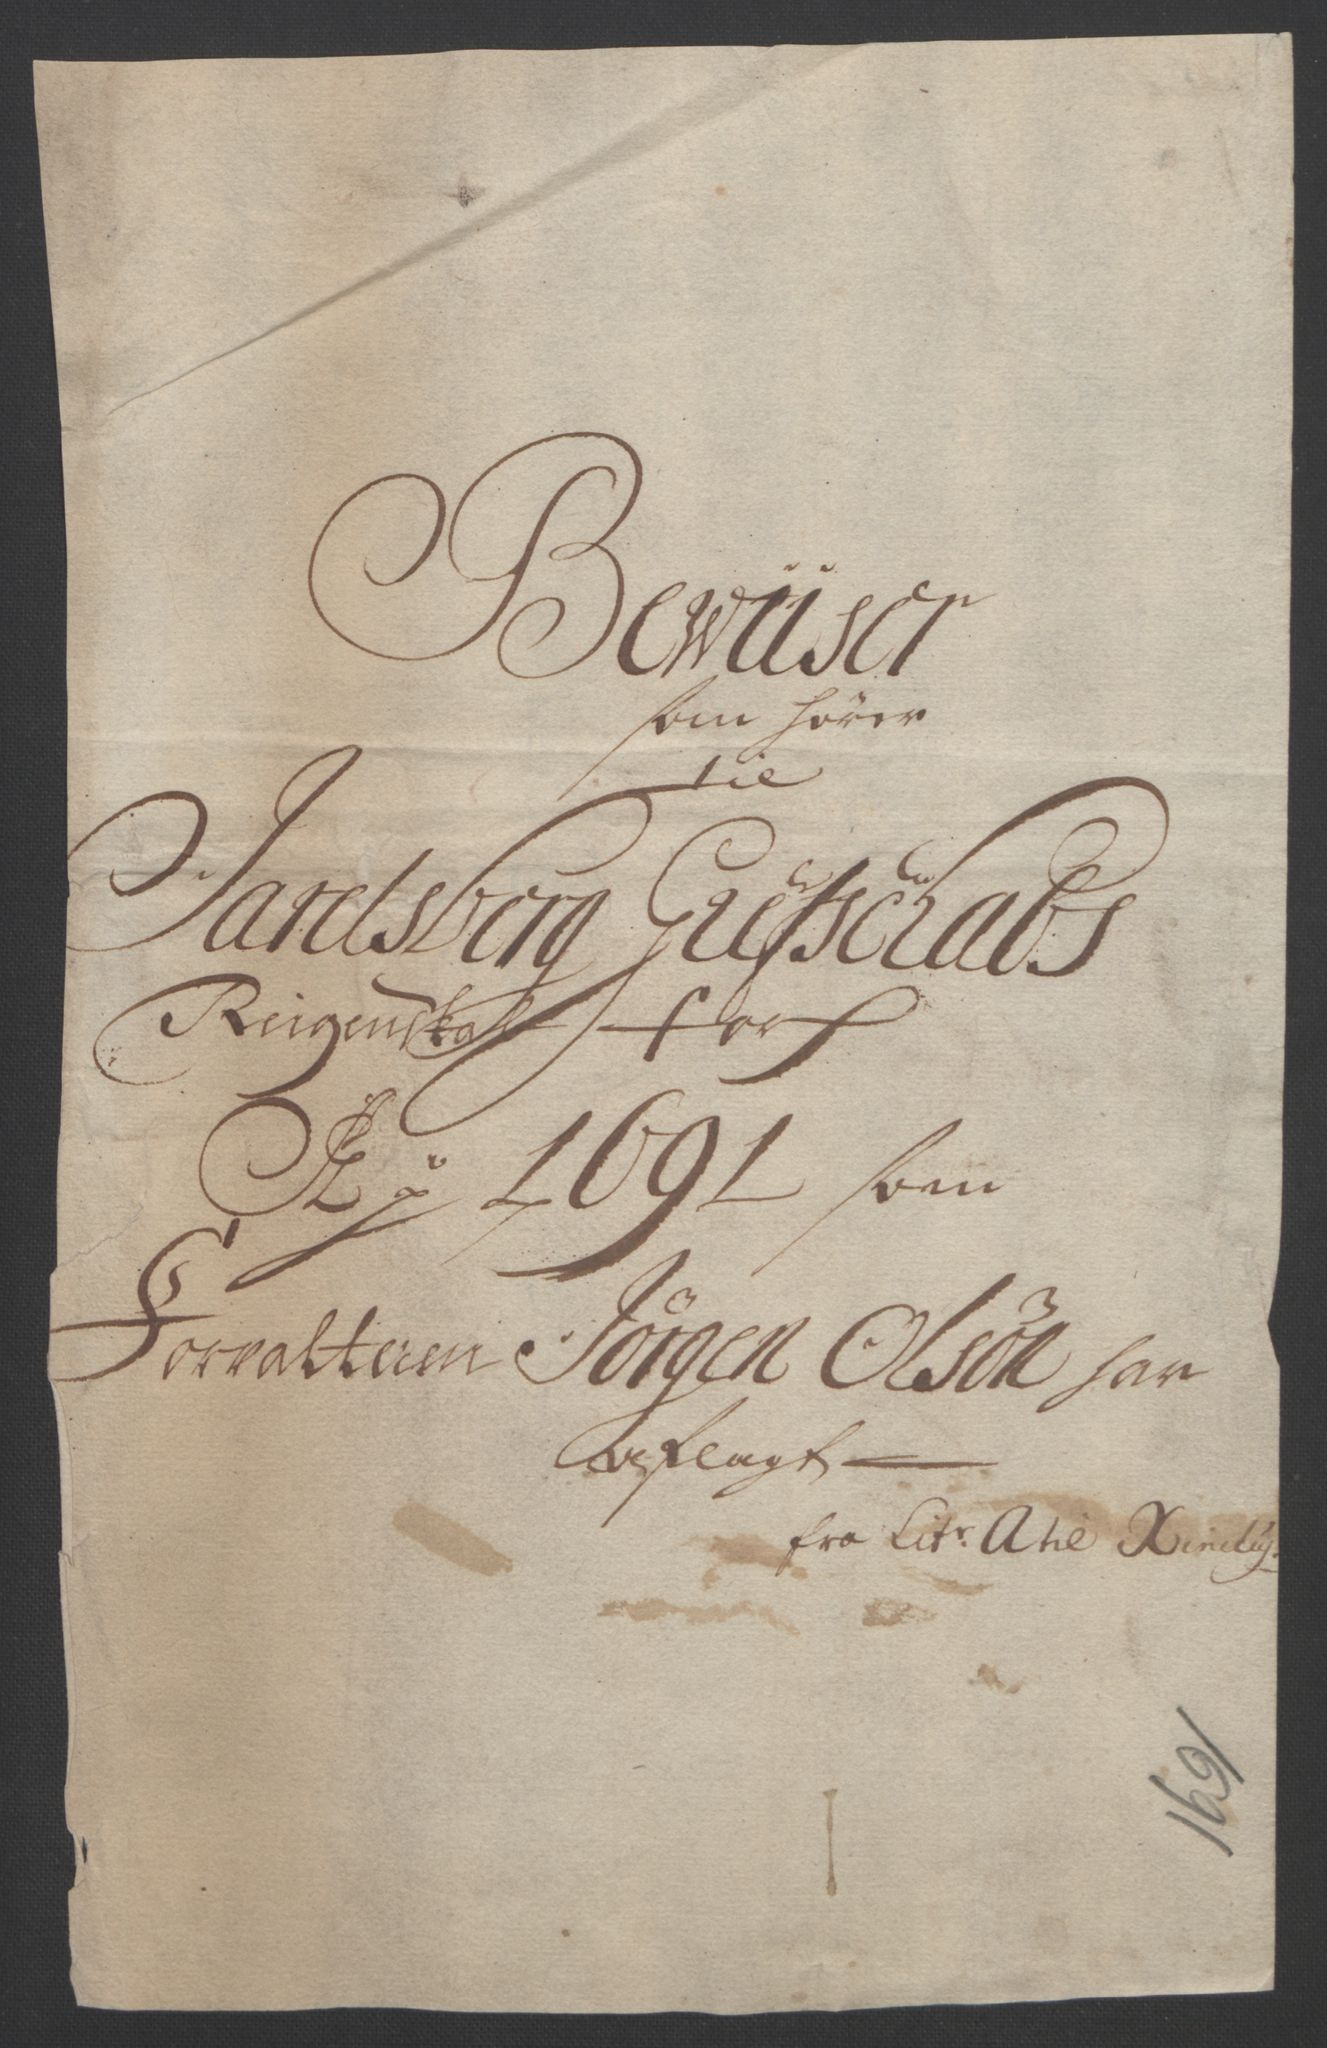 Bewüser
som hörer
til
Jarelsberg Grefschabs
Reigenskab for
Ao 1691 som
Forvalteren Jörgen Olsön har
aflagt
fra Litr. A til X inclus.
1691